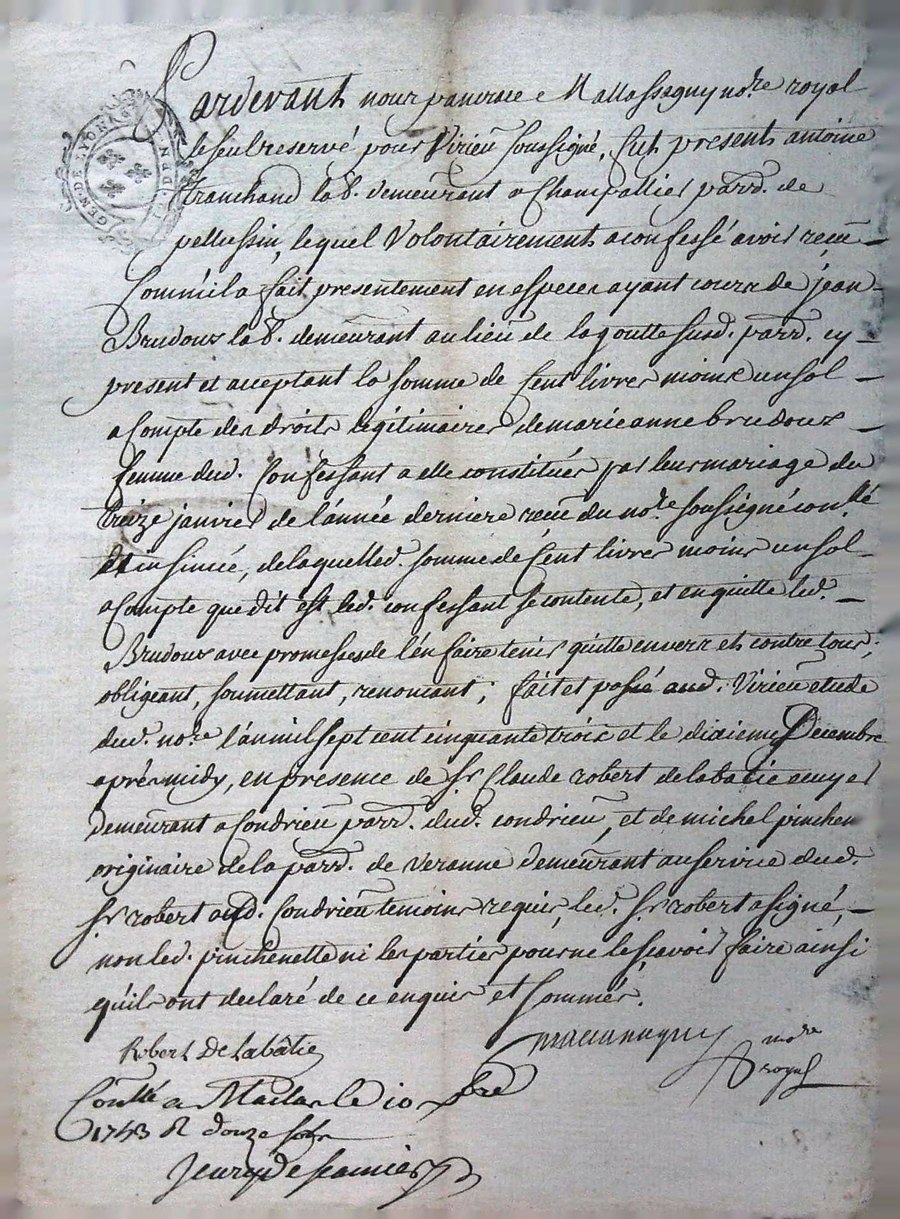 GEN. DE LYON
Pardevant nous pancrace Mallassagny no.re royal
le seul reservé pour Virieu soussigné, fut present antoine
tranchand lab.r demeurant a Champallier parr. de
pellussin, lequel Volontairement a confessé avoir receu
Comme il a fait presentement en especes ayant cours de jean
Brudoux lab.r demeurant au lieu de la goutte susd. parr. cy
present et acceptant la somme de Cent livres moins un sol
a Compte des droits legitimaires de marieanne brudoux
femme dud. Confessant a elle constitués par leur mariage du
treize janvier de l'année derniere receu du no.re soussigné con.llé
et insinüé, de laquelle d. somme de Cent livres moins un sol
a Compte que dit est led. confessant se contente, et en quitte led.
Brudoux avec promesses de l'en faire tenir quitte envers et contre tous;
obligeant, soumettant, renonçant; fait et passé aud. Virieu etude
dud. no.re l'an mil sept cent cinquante trois et le dixieme Decembre
aprés midy, en presence de S.r Claude robert de labatie ecuyer
demeurant a Condrieu parr. dud. condrieu, et de michel pinchen
originaire de la parr. de Veranne demeurant au service dud.
S.r robert aud. Condrieu temoins requis, led. S.r robert a signé,
non led. pinchenette ni les parties pour ne le sçavoir faire ainsi
qu'ils ont declaré de ce enquis et sommés.
Robert De Labâtie
no.re
royal
Con.llé a le 10 bre
R douze sols